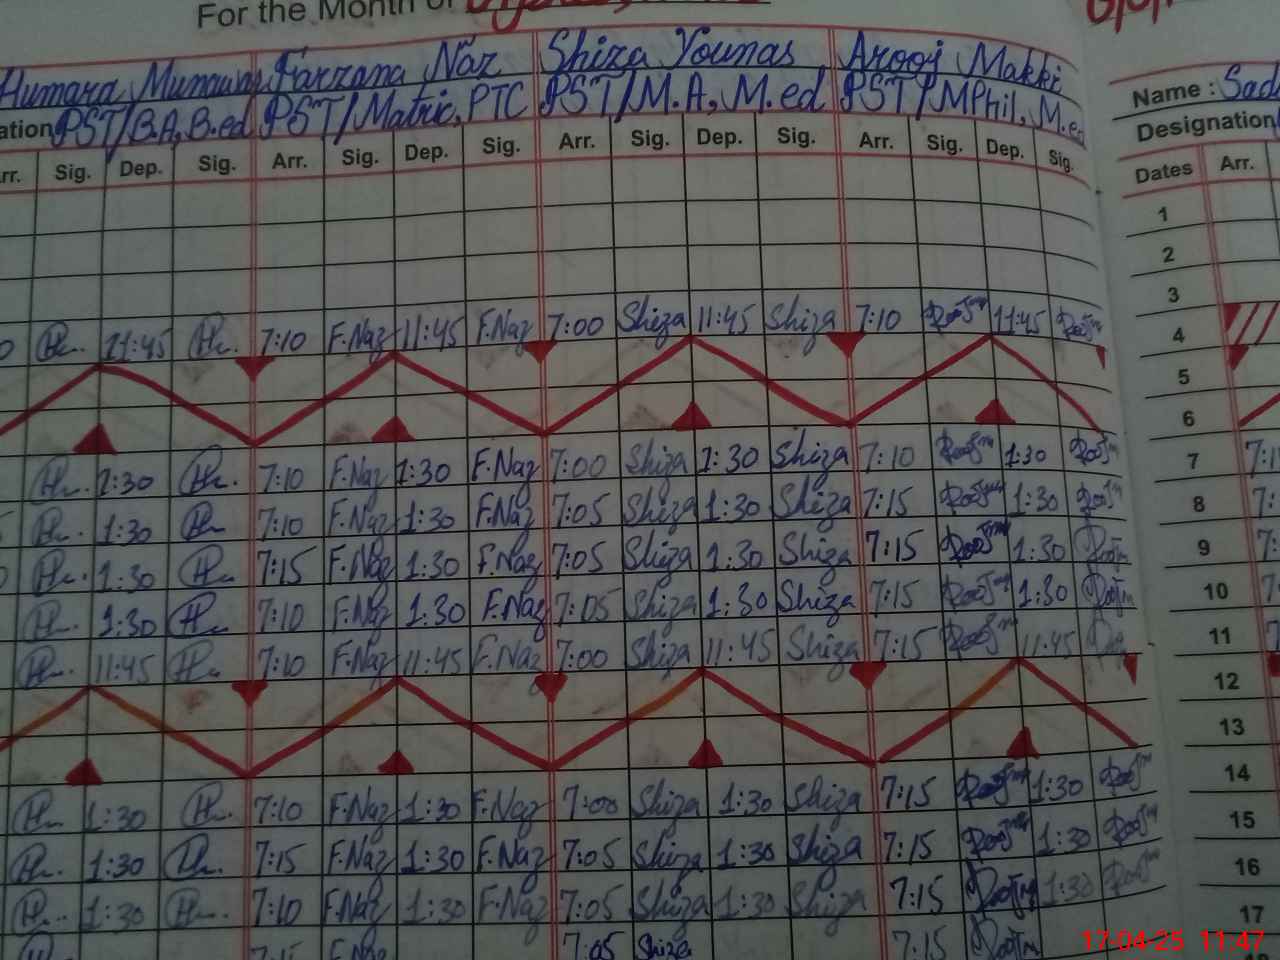 For the Month of
Humara Mumtaz Farzana Naz Shiza Younas Arooj Makki
Name : Sad
ation PST/B.A, B.ed PST/Matric, PTC PST/M.A, M.ed PST/MPhil, M.ed
Designation
rr. Sig. Dep. Sig. Arr. Sig. Dep. Sig. Arr. Sig. Dep. Sig. Arr. Sig. Dep. Sig.
Dates Arr.
1
2
3
0 11:45 7:10 F.Naz 11:45 F.Naz 7:00 Shiza 11:45 Shiza 7:10 11:45
4
5
6
1:30 7:10 F.Naz 1:30 F.Naz 7:00 Shiza 1:30 Shiza 7:10 1:30
7 7:1
1:30 7:10 F.Naz 1:30 F.Naz 7:05 Shiza 1:30 Shiza 7:15 1:30
8 7:
1:30 7:15 F.Naz 1:30 F.Naz 7:05 Shiza 1:30 Shiza 7:15 1:30
9 7:
1:30 7:10 F.Naz 1:30 F.Naz 7:05 Shiza 1:30 Shiza 7:15 1:30
10 7:
11:45 7:10 F.Naz 11:45 F.Naz 7:00 Shiza 11:45 Shiza 7:15 11:45
11
12
13
1:30 7:10 F.Naz 1:30 F.Naz 7:00 Shiza 1:30 Shiza 7:15 1:30
14
1:30 7:15 F.Naz 1:30 F.Naz 7:05 Shiza 1:30 Shiza 7:15 1:30
15
1:30 7:10 F.Naz 1:30 F.Naz 7:05 Shiza 1:30 Shiza 7:15 1:30
16
7:15 F.Naz 7:05 Shiza 7:15
17
17-04-25 11:47